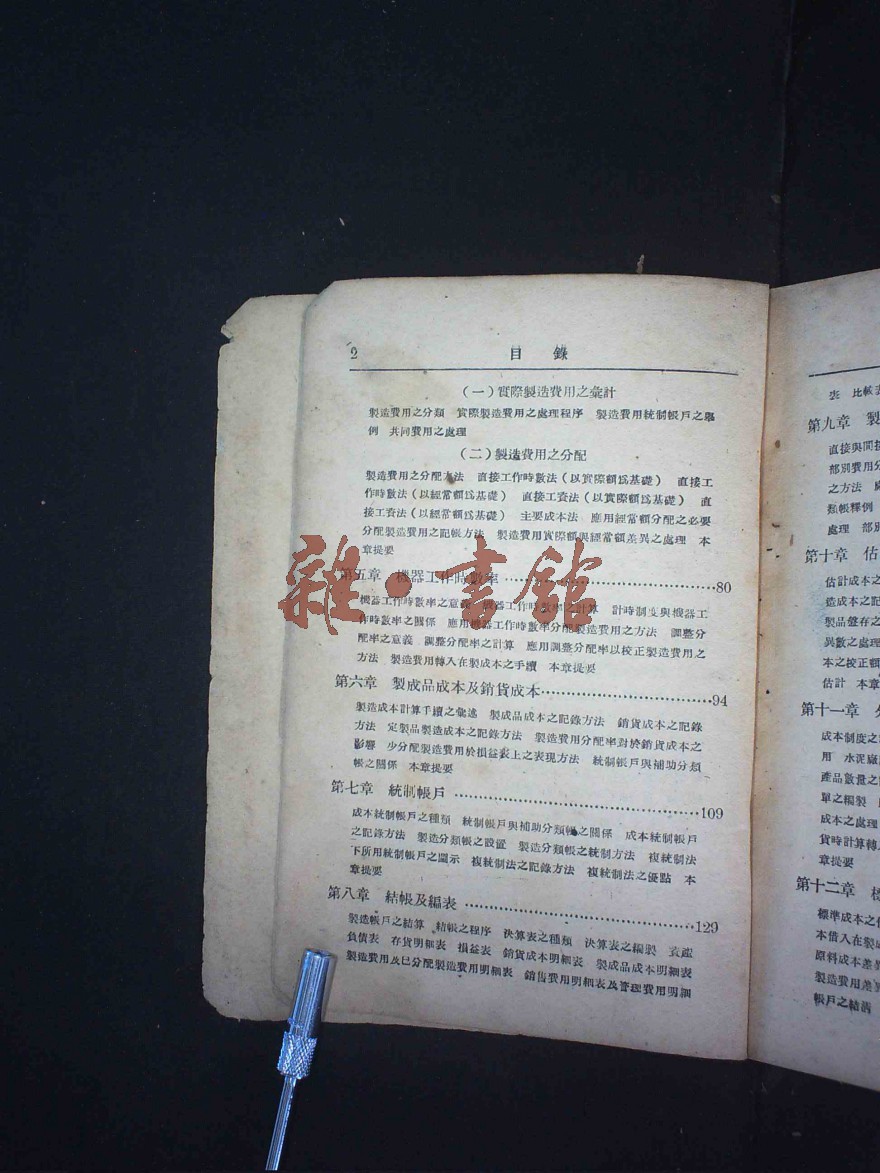 2 目錄
(一)實際製造費用之彙計
製造費用之分類 實際製造費用之處理程序 製造費用統制帳戶之舉
例 共同費用之處理
(二)製造費用之分配
製造費用之分配方法 直接工作時數法(以實際額爲基礎) 直接工
作時數法(以經常額爲基礎) 直接工資法(以實際額爲基礎) 直
接工資法(以經常額爲基礎) 主要成本法 應用經常額分配之必要
分配製造費用之記帳方法 製造費用實際額與經常額差異之處理 本
章提要
第五章 機器工作時數率 80
機器工作時數率之意義 機器工作時數率之計算 計時制度與機器工
作時數率之關係 應用機器工作時數率分配製造費用之方法 調整分
配率之意義 調整分配率之計算 應用調整分配率以校正製造費用之
方法 製造費用轉入在製成本之手續 本章提要
第六章 製成品成本及銷貨成本 94
製造成本計算手續之彙述 製成品成本之記錄方法 銷貨成本之記錄
方法 定製品製造成本之記錄方法 製造費用分配率對於銷貨成本之
影響 少分配製造費用於損益表上之表現方法 統制帳戶與補助分類
帳之關係 本章提要
第七章 統制帳戶 109
成本統制帳戶之種類 統制帳戶與補助分類帳之關係 成本統制帳戶
之記錄方法 製造分類帳之設置 製造分類帳之統制方法 複統制法
下所用統制帳戶之圖示 複統制法之記錄方法 複統制法之優點 本
章提要
第八章 結帳及編表 129
製造帳戶之結算 結帳之程序 決算表之種類 決算表之編製 資產
負債表 存貨明細表 損益表 銷貨成本明細表 製成品成本明細表
製造費用及已分配製造費用明細表 銷售費用明細表及管理費用明細
表 比較
第九章 製
直接與間接
部別費用分
之方法
類帳釋例
處理 部別
第十章 估
估計成本之
造成本之記
製品盤存之
異數之處理
本之校正
估計 本章
第十一章
成本制度之
用 水泥廠
產品數量之
單之編製
成本之處理
貨時計算轉
章提要
第十二章 標
標準成本之
本借入在製
原料成本差異
製造費用差異
帳戶之結清
雜·書館